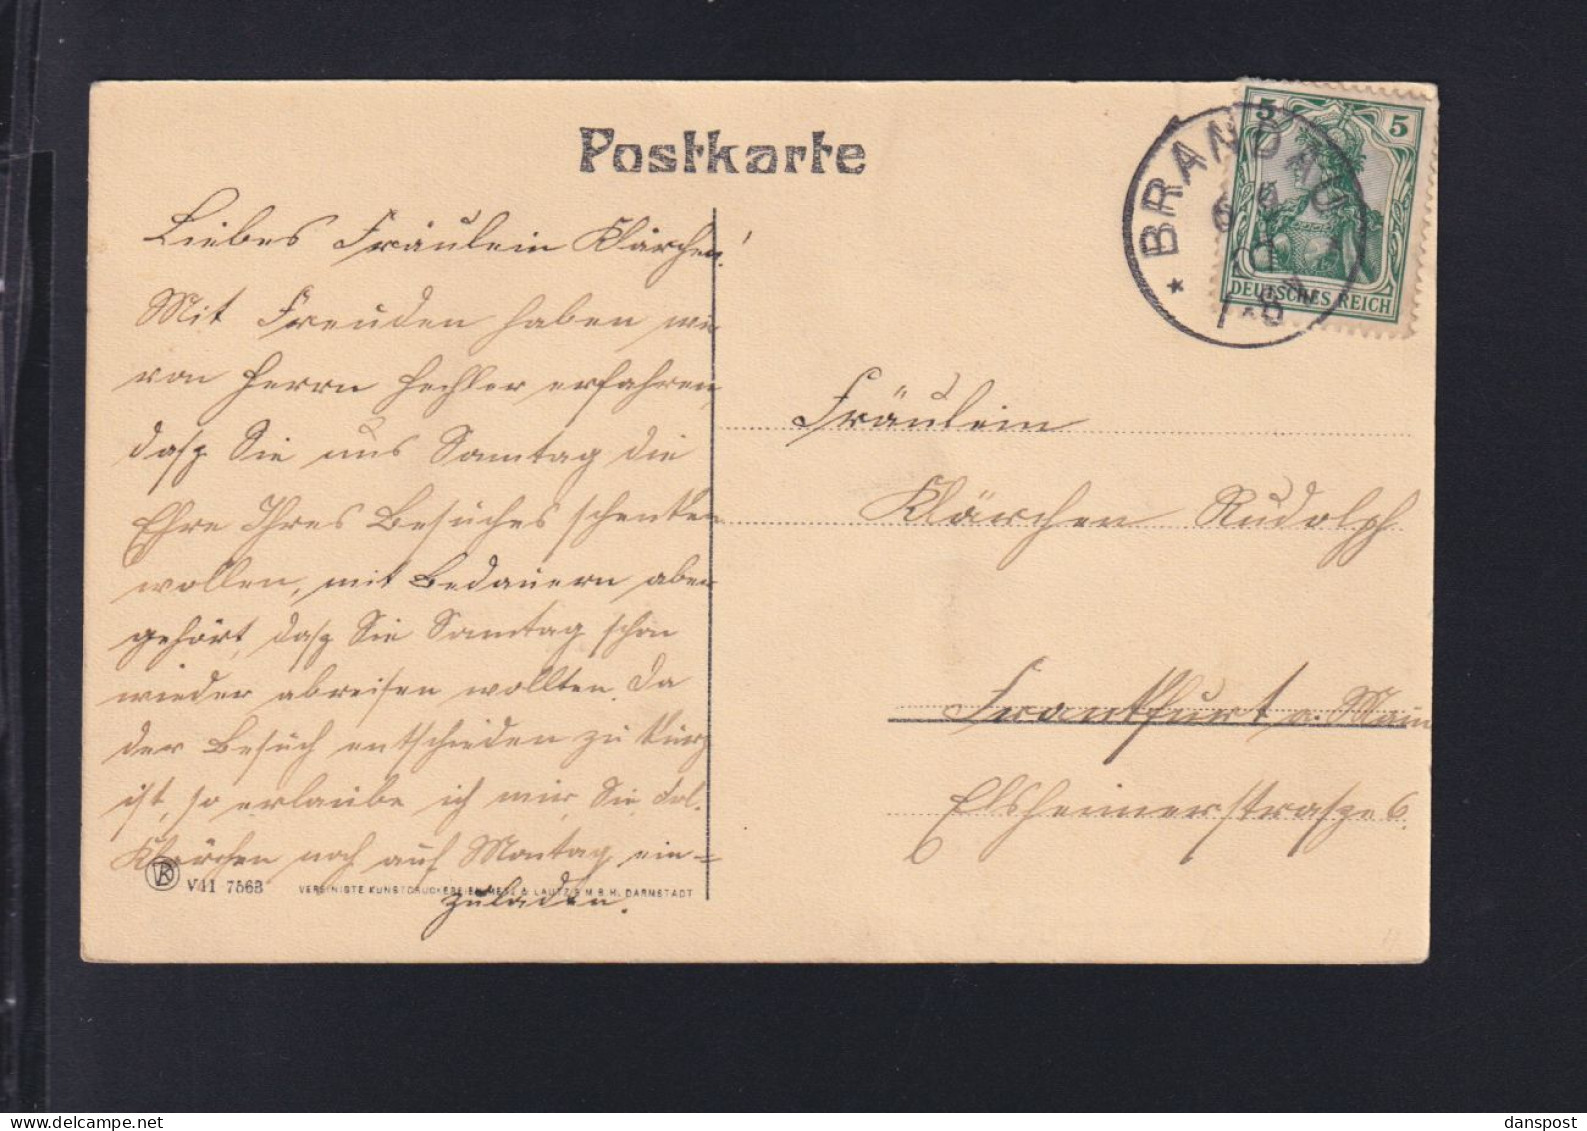 Postkarte
Liebes Fräulein Klärchen!
Mit Freuden haben wir
von Herrn Hechler erfahren,
dass Sie uns Sonntag die
Ehre Ihres Besuches schenken
wollen, mit Bedauern aber
gehört, dass Sie Sonntag schon
wieder abreisen wollten. Da
der Besuch entschieden zu kurz
ist, so erlaube ich mir, Sie, Frl.
Klärchen noch auf Montag ein=
zuladen.
V41 7563
VEREINIGTE KUNSTDRUCKEREIEN METZ & LAUTZ G.M.B.H. DARMSTADT
5 5
DEUTSCHES REICH
* BRANDAU
Fräulein
Klärchen Rudolph
Frankfurt a. Main
Elsheimerstrasse 6.
danspost